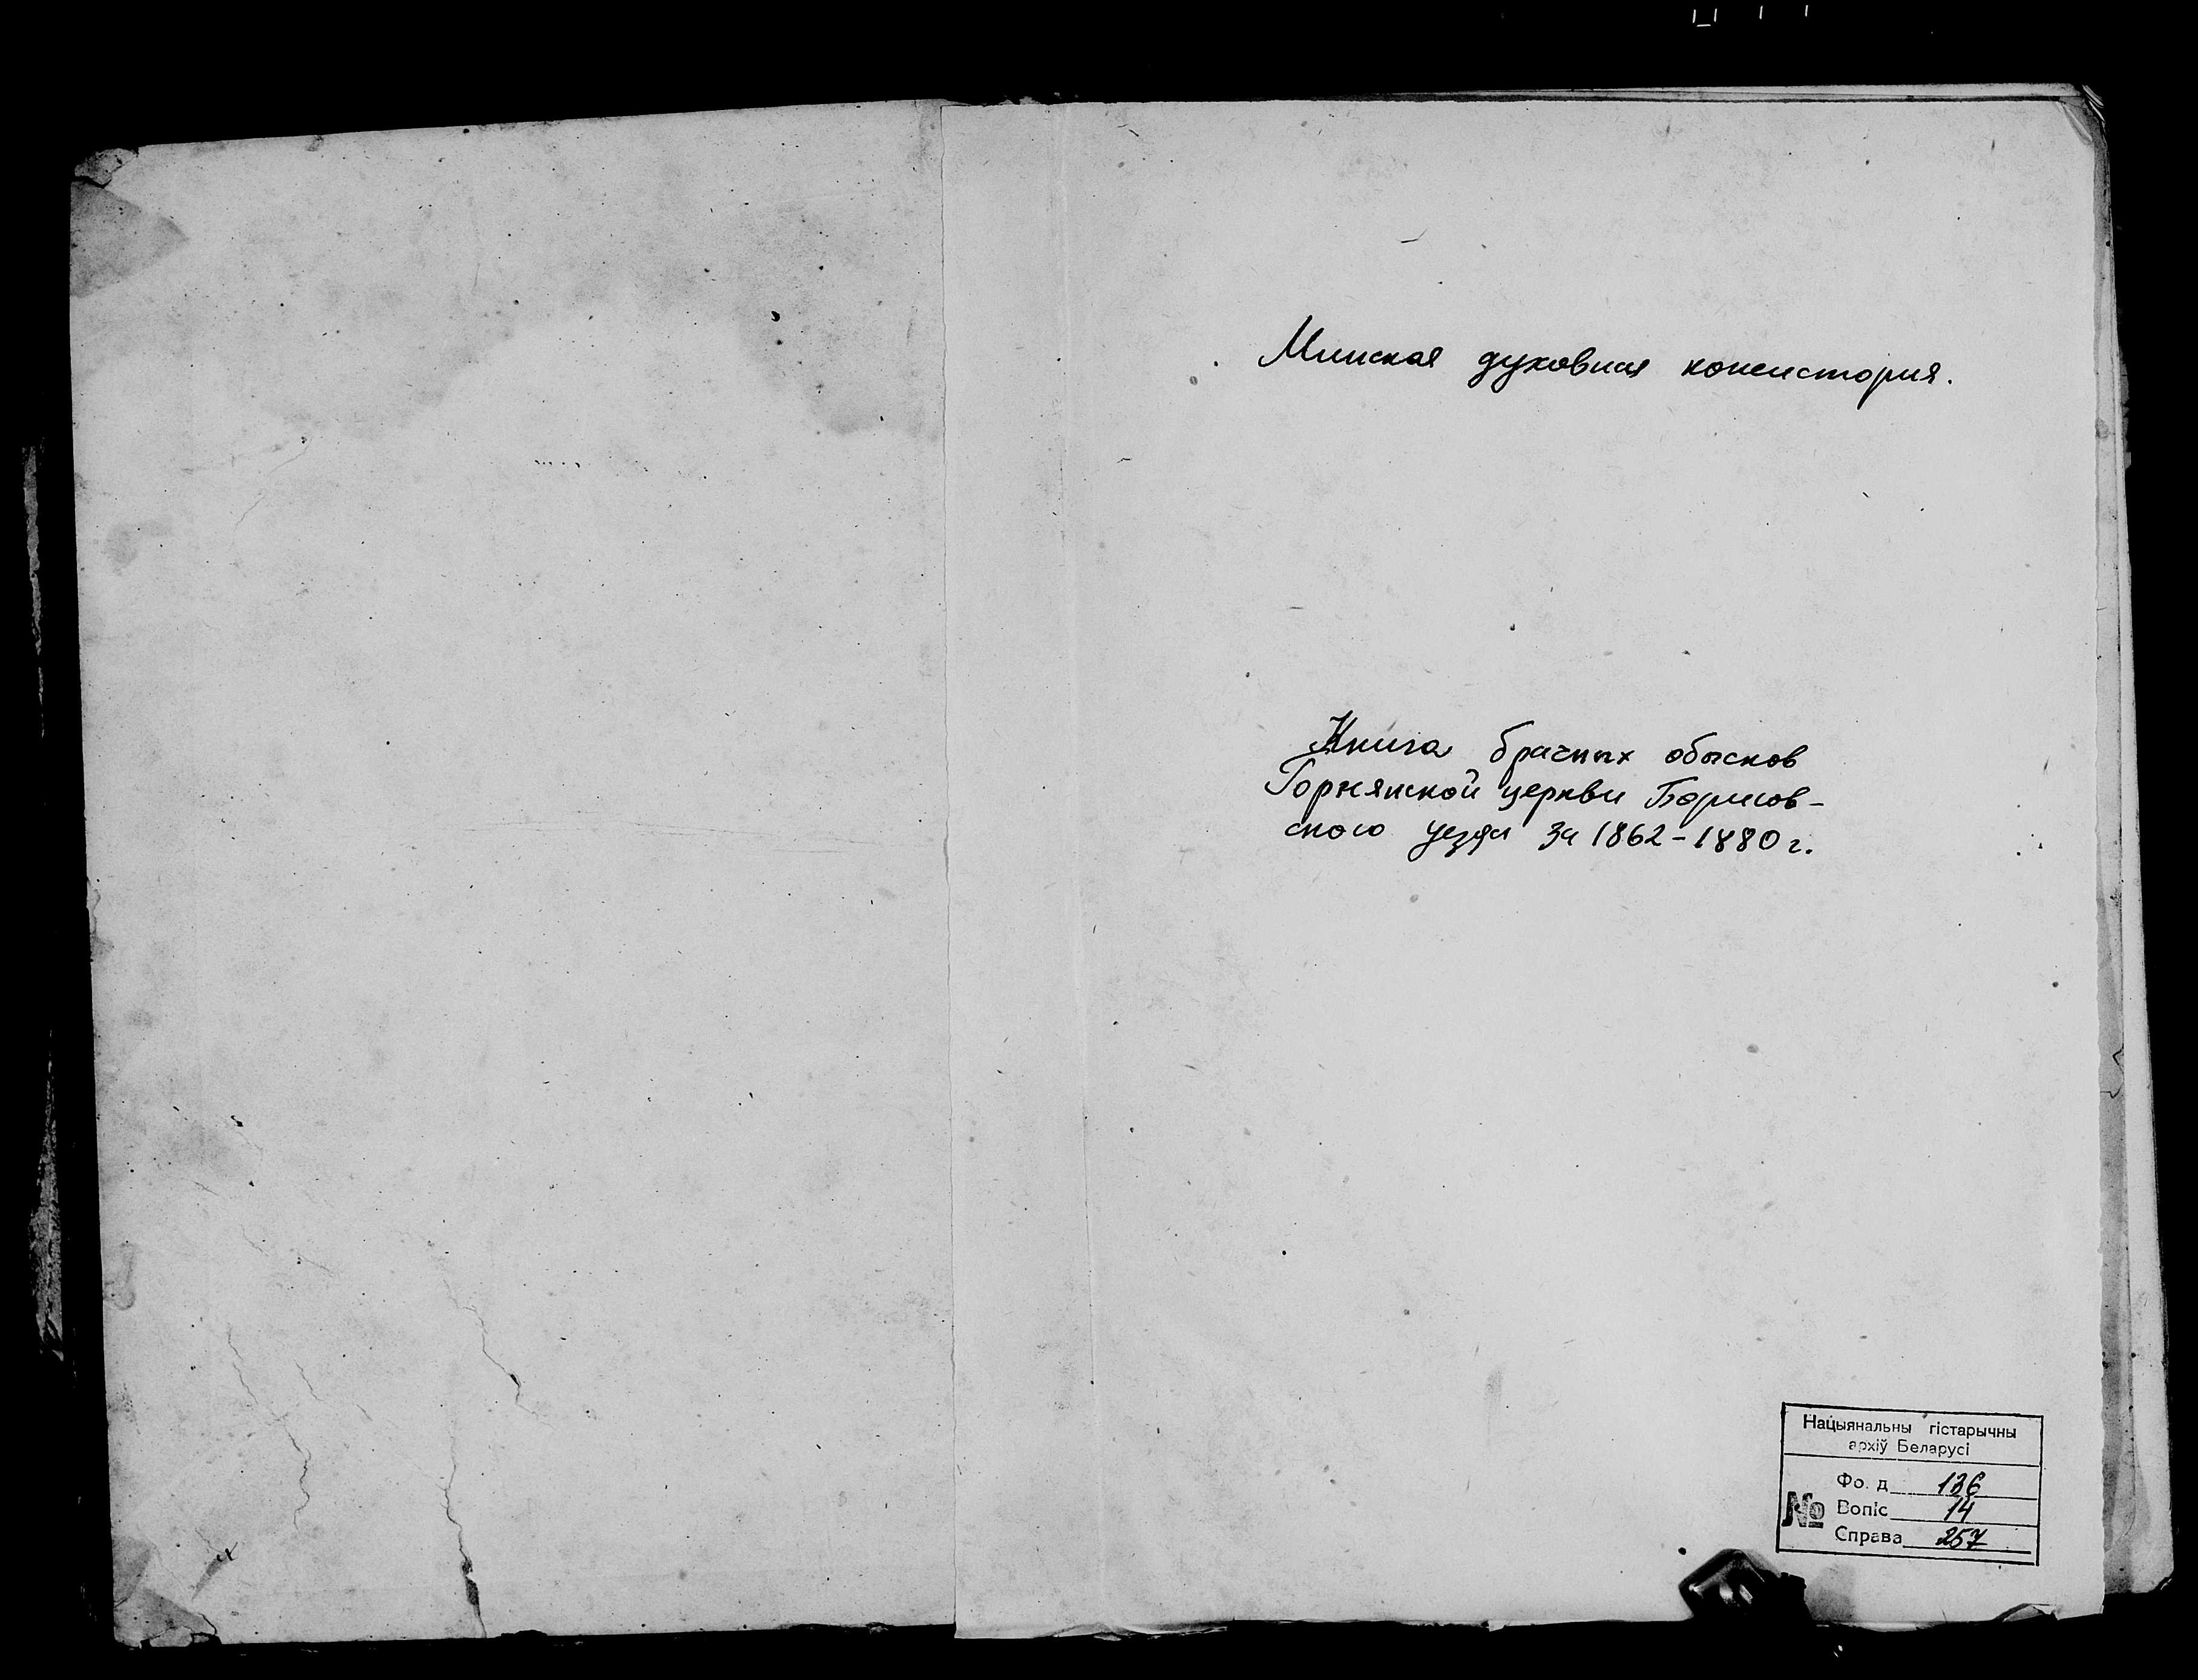 Минская духовная консистория.
Книга брачных обысков
Горнянской церкви Борисов-
ского уезда за 1862-1880 г.
Нацыянальны гістарычны
архіў Беларусі
Фо. д 136
№ Вопіс 14
Справа 257